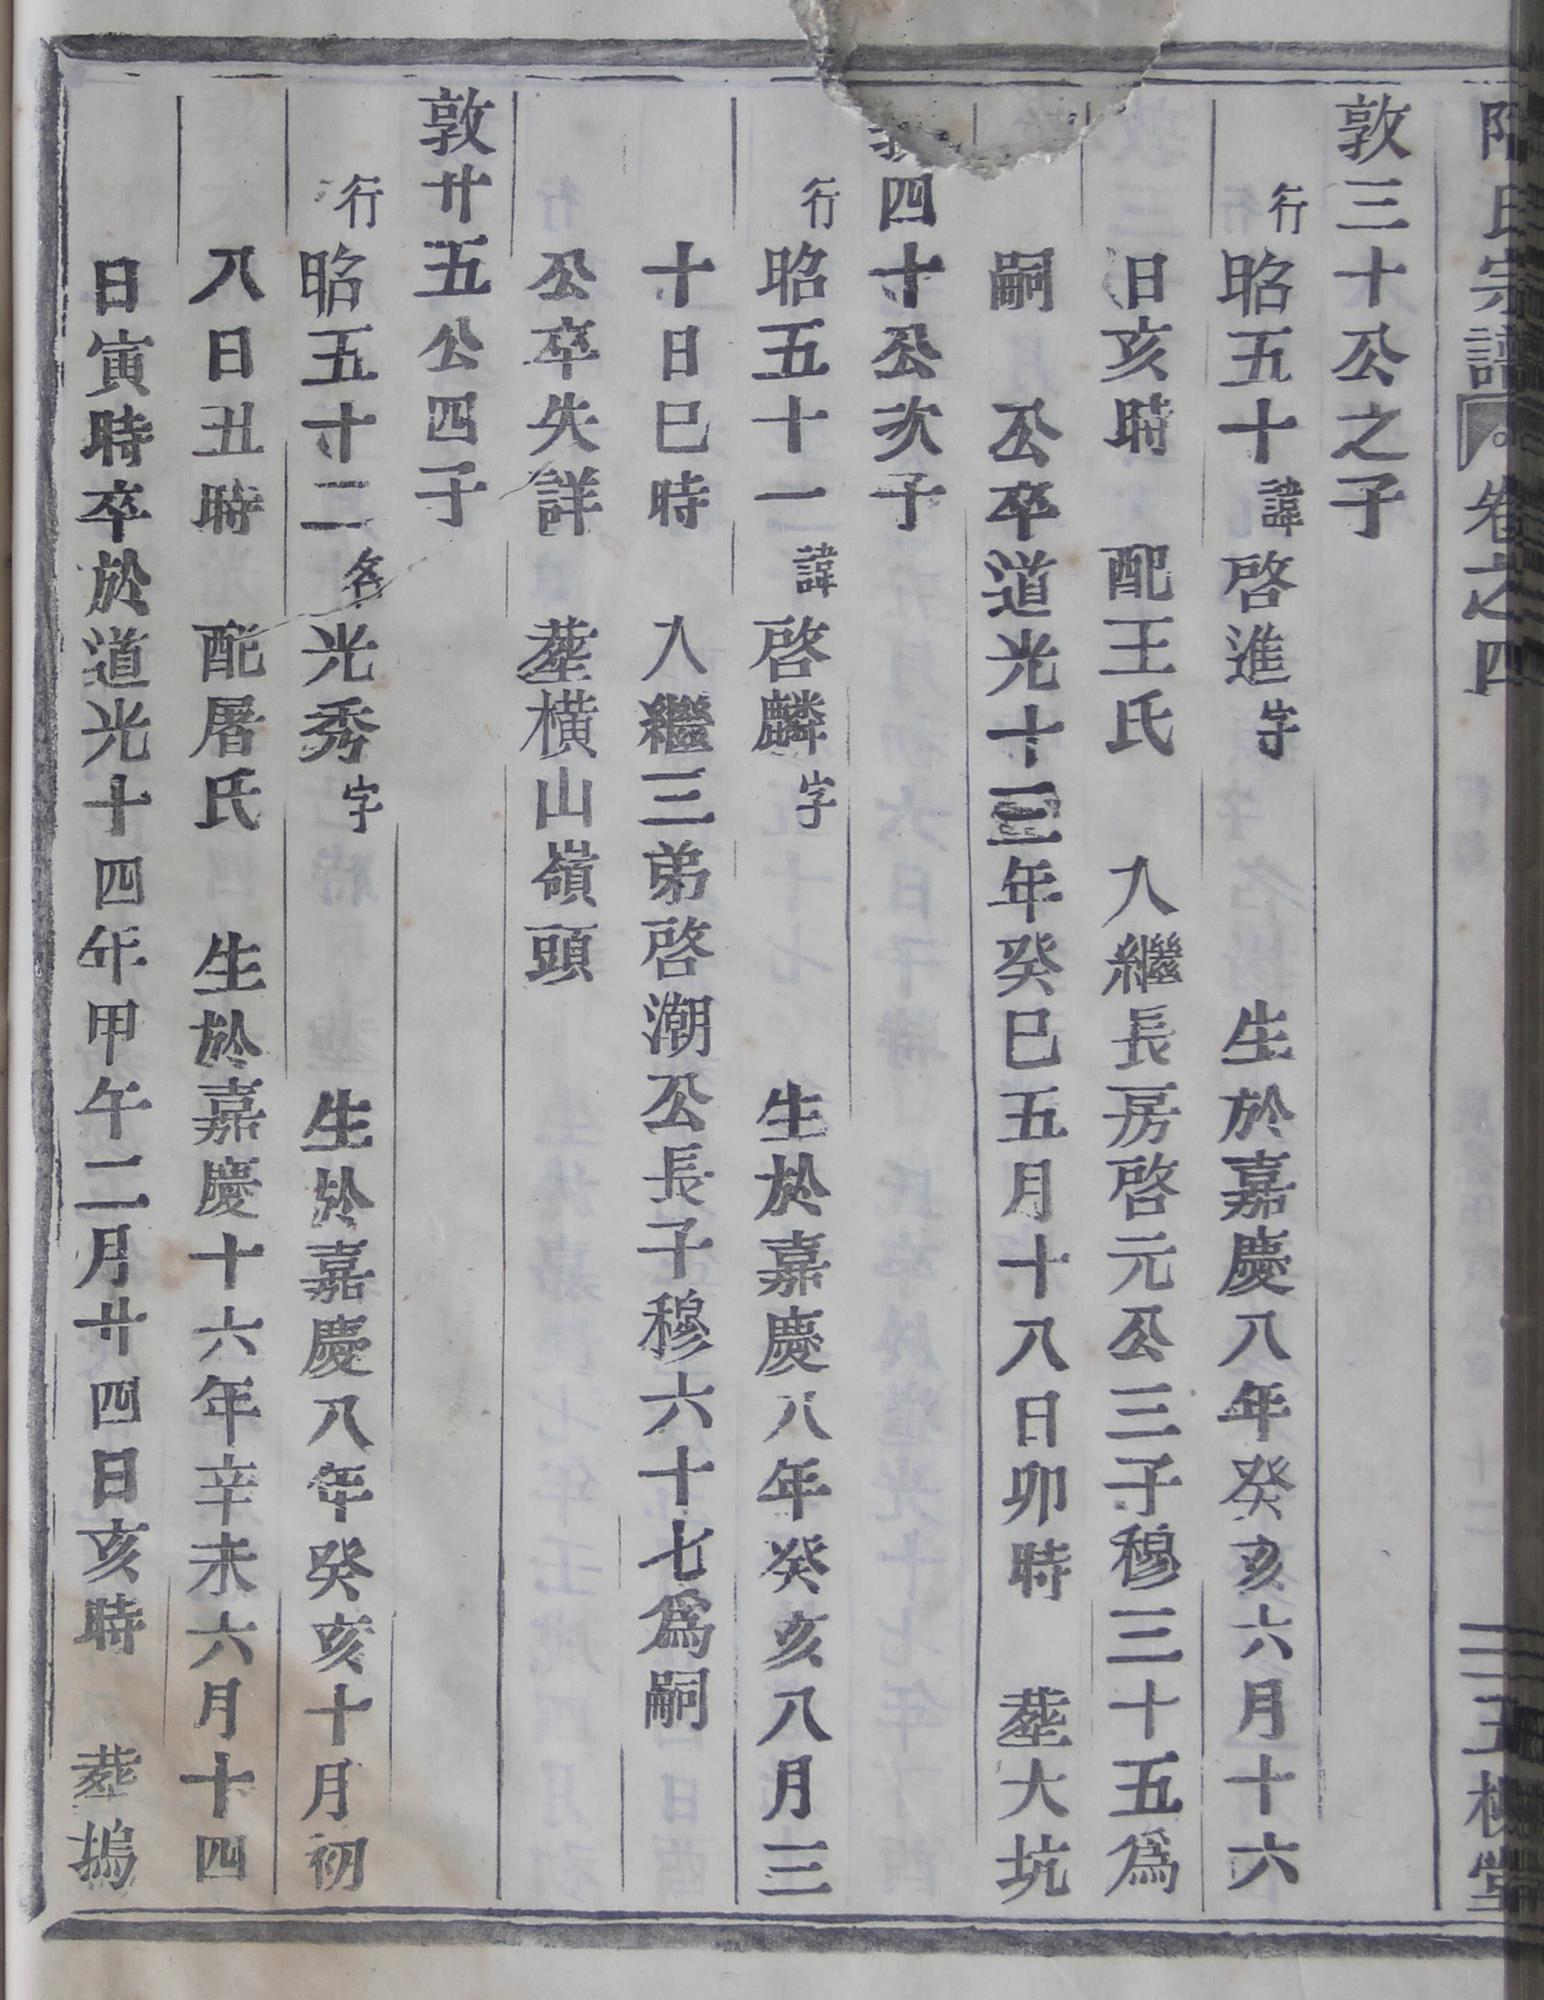 氏宗譜 卷之四 三王槐堂
敦三十公之子
行昭五十諱啓進字 生於嘉慶八年癸亥六月十六
日亥時 配王氏 入繼長房啓元公三子穆三十五爲
嗣 公卒道光十三年癸巳五月十八日卯時 塟大坑
敦四十公次子
行昭五十一諱啓麟字 生於嘉慶八年癸亥八月三
十日巳時 入繼三弟啓潮公長子穆六十七爲嗣
公卒失詳 塟橫山嶺頭
敦廿五公四子
行昭五十二名光秀字 生於嘉慶八年癸亥十月初
八日丑時 配屠氏 生於嘉慶十六年辛未六月十四
日寅時卒於道光十四年甲午二月廿四日亥時 塟塢